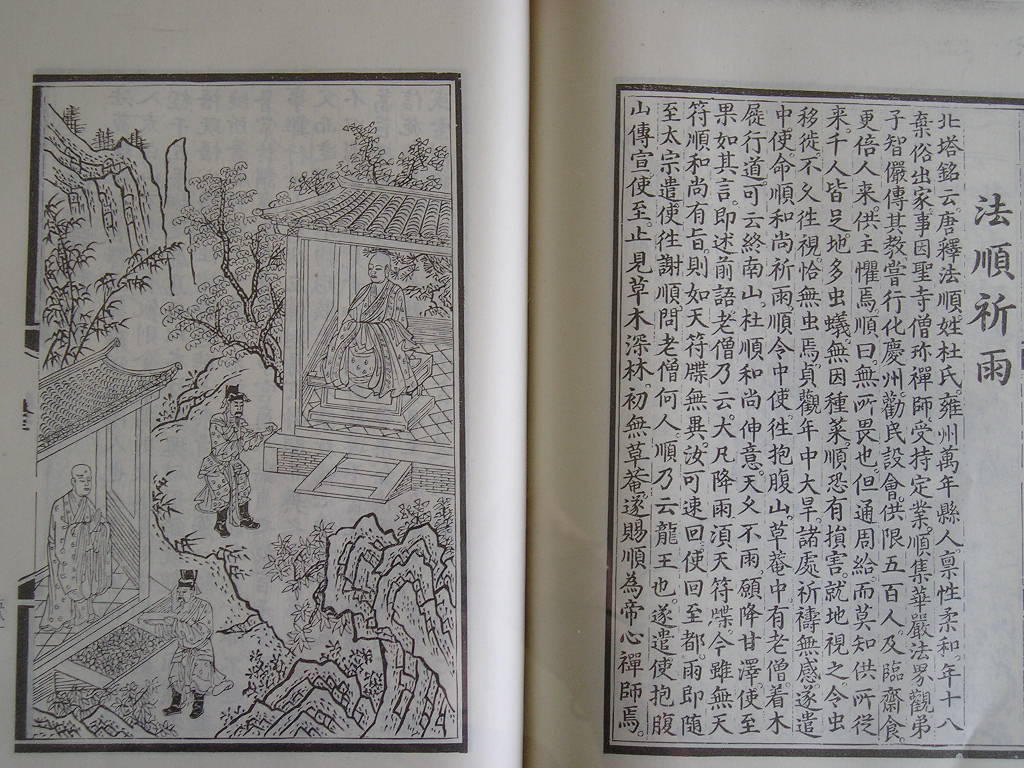 法順祈雨
北塔銘云。唐釋法順。姓杜氏。雍州萬年縣人。禀性柔和。年十八
棄俗出家。事因聖寺僧珎禪師。受持定業。順集華嚴法界觀。弟
子智儼傳其教。嘗行化慶州。勸民設會。供限五百人。及臨齋食。
更倍人来。供主懼焉。順曰無所畏也。但通周給。而莫知供所從
来。千人皆足。地多虫蟻。無因種菜。順恐有損害。就地視之。令虫
移徙。不久往視。恰無虫焉。貞觀年中大旱。諸處祈禱無感。遂遣
中使。命順和尚祈雨。順令中使往抱腹山。草菴中有老僧着木
屐行道。可云終南山。杜順和尚伸意。天久不雨。願降甘澤。使至
果如其言。即述前語。老僧乃云。大凡降雨。湏天符牒。今雖無天
符。順和尚有旨。則如天符牒無異。汝可速回。使回至都。雨即随
至。太宗遣使往謝順。問老僧何人。順乃云龍王也。遂遣使抱腹
山傳宣。使至。止見草木深林。初無草菴。遂賜順為帝心禪師焉。